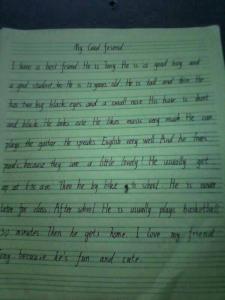 My Good friend
I have a best friend. He is Tony. He is a good boy and
a good student. he He is 13 years old. He is tall and thin. He
has two big black eyes and a small nose. His hair is short
and black. He looks cute. He likes music very much. He can
plays the guitar. He speaks English very well. And he likes
because they are a little lovely! He usually get
up at 6:30 a.m. Then he by bike to school. He is never
later for class. After school. He is usually plays basketball
30 minutes. Then he gets home. I love my friend
Tony because he's fun and cute.